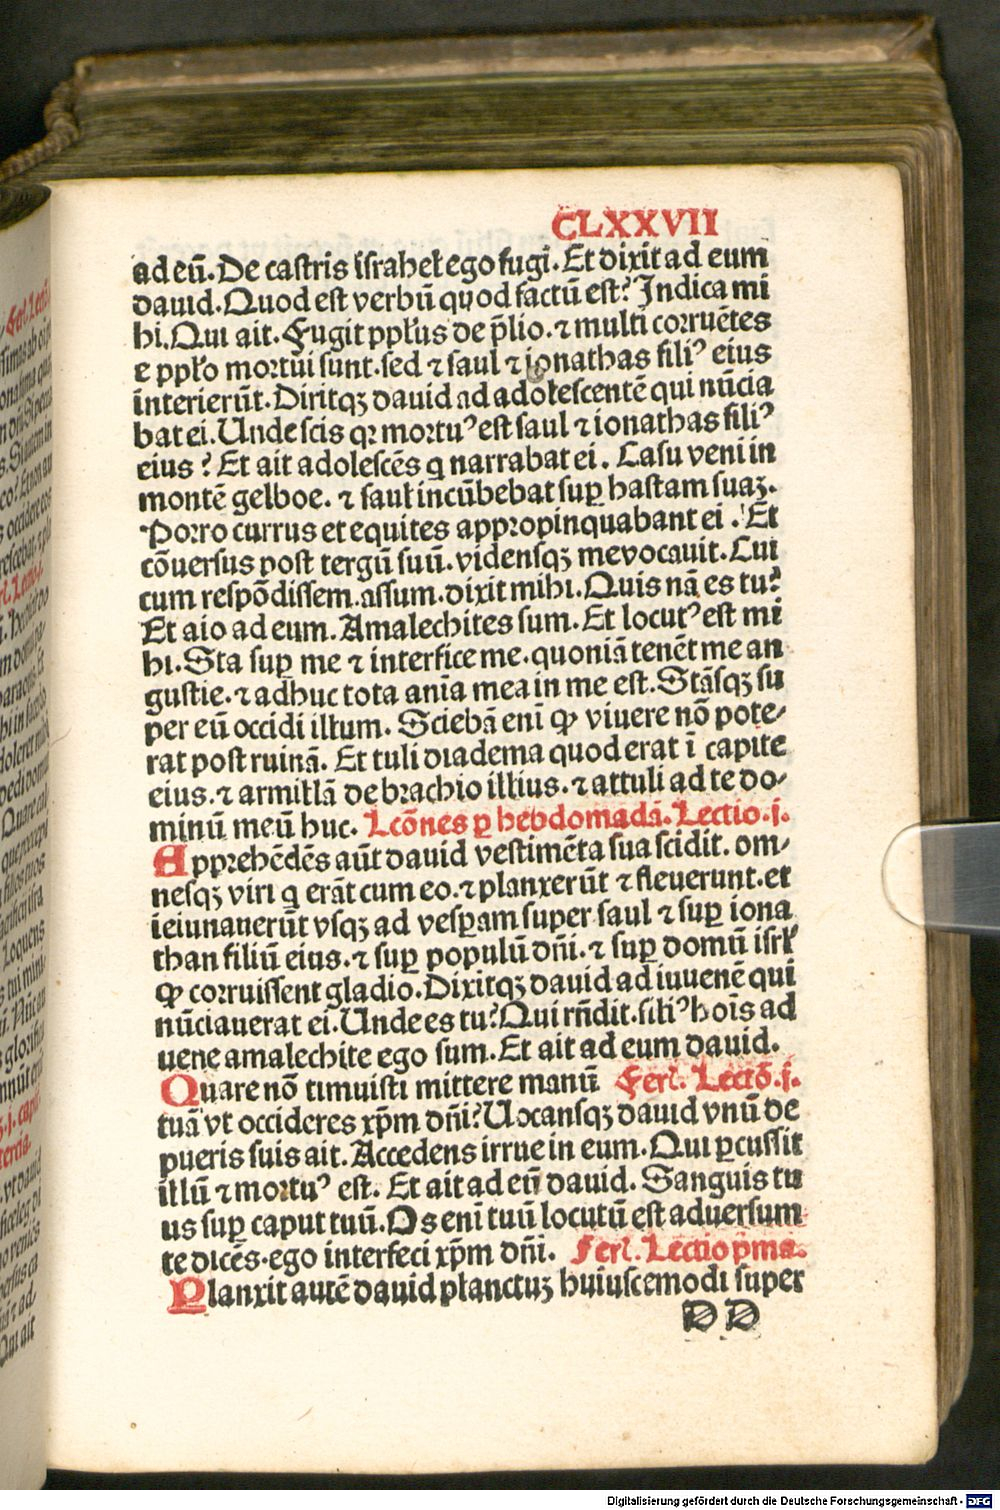 CLXXVII
ad eū. De castris israhel ego fugi. Et dixit ad eum
dauid. Quod est verbū quod factū est? Indica mi
hi. Qui ait. Fugit ppl'us de p̄lio. ⁊ multi corruētes
e ppl'o mortui sunt. sed ⁊ saul ⁊ ionathas filiꝰ eius
īnterierūt. Diritqꝫ dauid ad adolescentē qui nūcia
bat ei. Unde scis qꝛ mortuꝰ est saul ⁊ ionathas filiꝰ
eius? Et ait adolescēs q narrabat ei. Casu veni in
montē gelboe. ⁊ saul incūbebat suꝑ hastam suaꝫ.
Porro currus et equites appropinquabant ei. Et
cōuersus post tergū suū. vidensqꝫ me vocauit. Cui
cum respōdissem. assum. dixit mihi. Quis nā es tu?
Et aio ad eum. Amalechites sum. Et locutꝰ est mi
hi. Sta suꝑ me ⁊ interfice me. quoniā tenēt me an
gustie. ⁊ adhuc tota anīa mea in me est. Stāsqꝫ su
per eū occidi illum. Sciebā enī ꝙ viuere nō pote⸗
rat post ruinā. Et tuli diadema quod erat ī capite
eius. ⁊ armillā de brachio illius. ⁊ attuli ad te do⸗
minū meū huc. Lcōnes ꝑ hebdomadā. Lectio. j.
Apprehēdēs aūt dauid vestimēta sua scidit. om⸗
nesqꝫ viri q erāt cum eo. ⁊ planxerūt ⁊ fleuerunt. et
ieiunauerūt vsqꝫ ad vesꝑam super saul ⁊ suꝑ iona
than filiū eius. ⁊ suꝑ populū dn̄i. ⁊ suꝑ domū isrl'
ꝙ corruissent gladio. Dixitqꝫ dauid ad iuuenē qui
nūciauerat ei. Unde es tu? Qui rn̄dit. filiꝰ hoīs ad
uene amalechite ego sum. Et ait ad eum dauid.
Quare nō timuisti mittere manū Ferl. Lectō. j.
tuā vt occideres xp̄m dn̄i? Uocansqꝫ dauid vnū de
pueris suis ait. Accedens irrue in eum. Qui ꝑcussit
illū ⁊ mortuꝰ est. Et ait ad eū dauid. Sanguis tu
us suꝑ caput tuū. Os enī tuū locutū est aduersum
te dicēs. ego interfeci xp̄m dn̄i. Ferl. Lectio p̄ma.
Planxit autē dauid planctuꝫ huiuscemodi super
DD
Digitalisierung gefördert durch die Deutsche Forschungsgemeinschaft - DFG